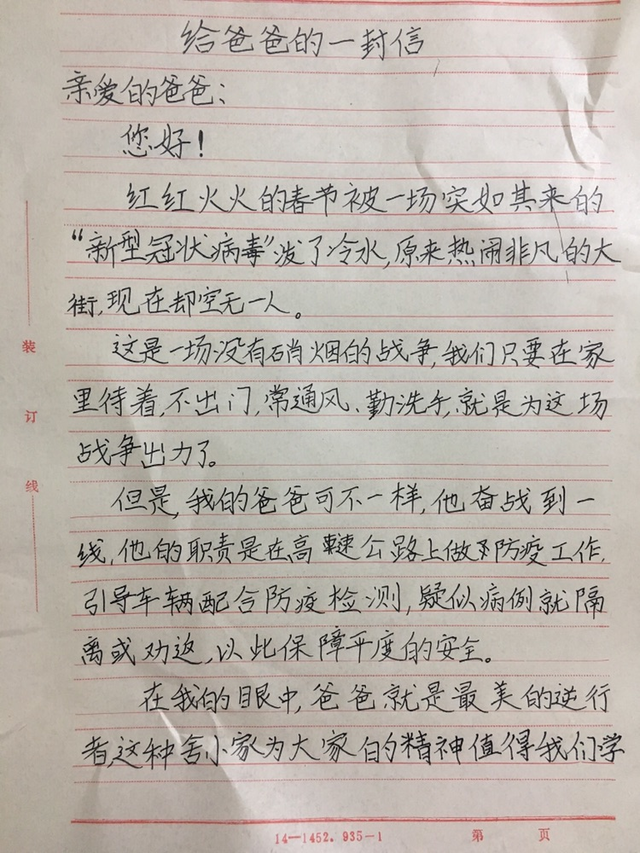 给爸爸的一封信
亲爱的爸爸：
您好！
红红火火的春节被一场突如其来的
“新型冠状病毒”泼了冷水，原来热闹非凡的大
街，现在却空无一人。
这是一场没有硝烟的战争，我们只要在家
里待着，不出门，常通风、勤洗手，就是为这场
战争出力了。
但是，我的爸爸可不一样，他奋战到一
线，他的职责是在高速公路上做防疫工作，
引导车辆配合防疫检测，疑似病例就隔
离或劝返，以此保障平度的安全。
在我的眼中，爸爸就是最美的逆行
者，这种舍小家为大家的精神值得我们学
装
订
线
14—1452. 935—1
第 页